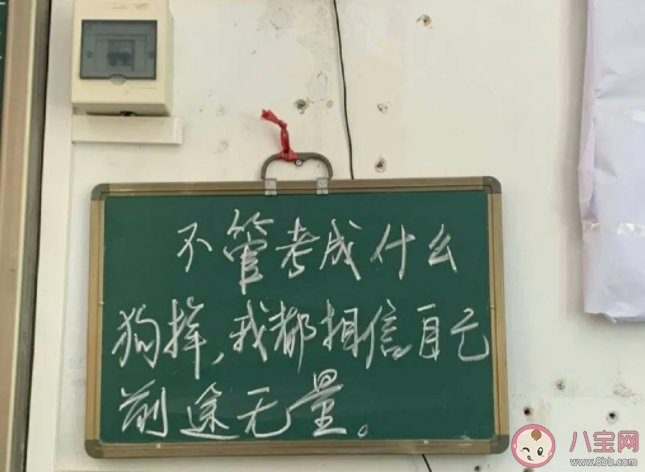 不管考成什么
狗样,我都相信自己
前途无量。
八宝网
www.8bb.com